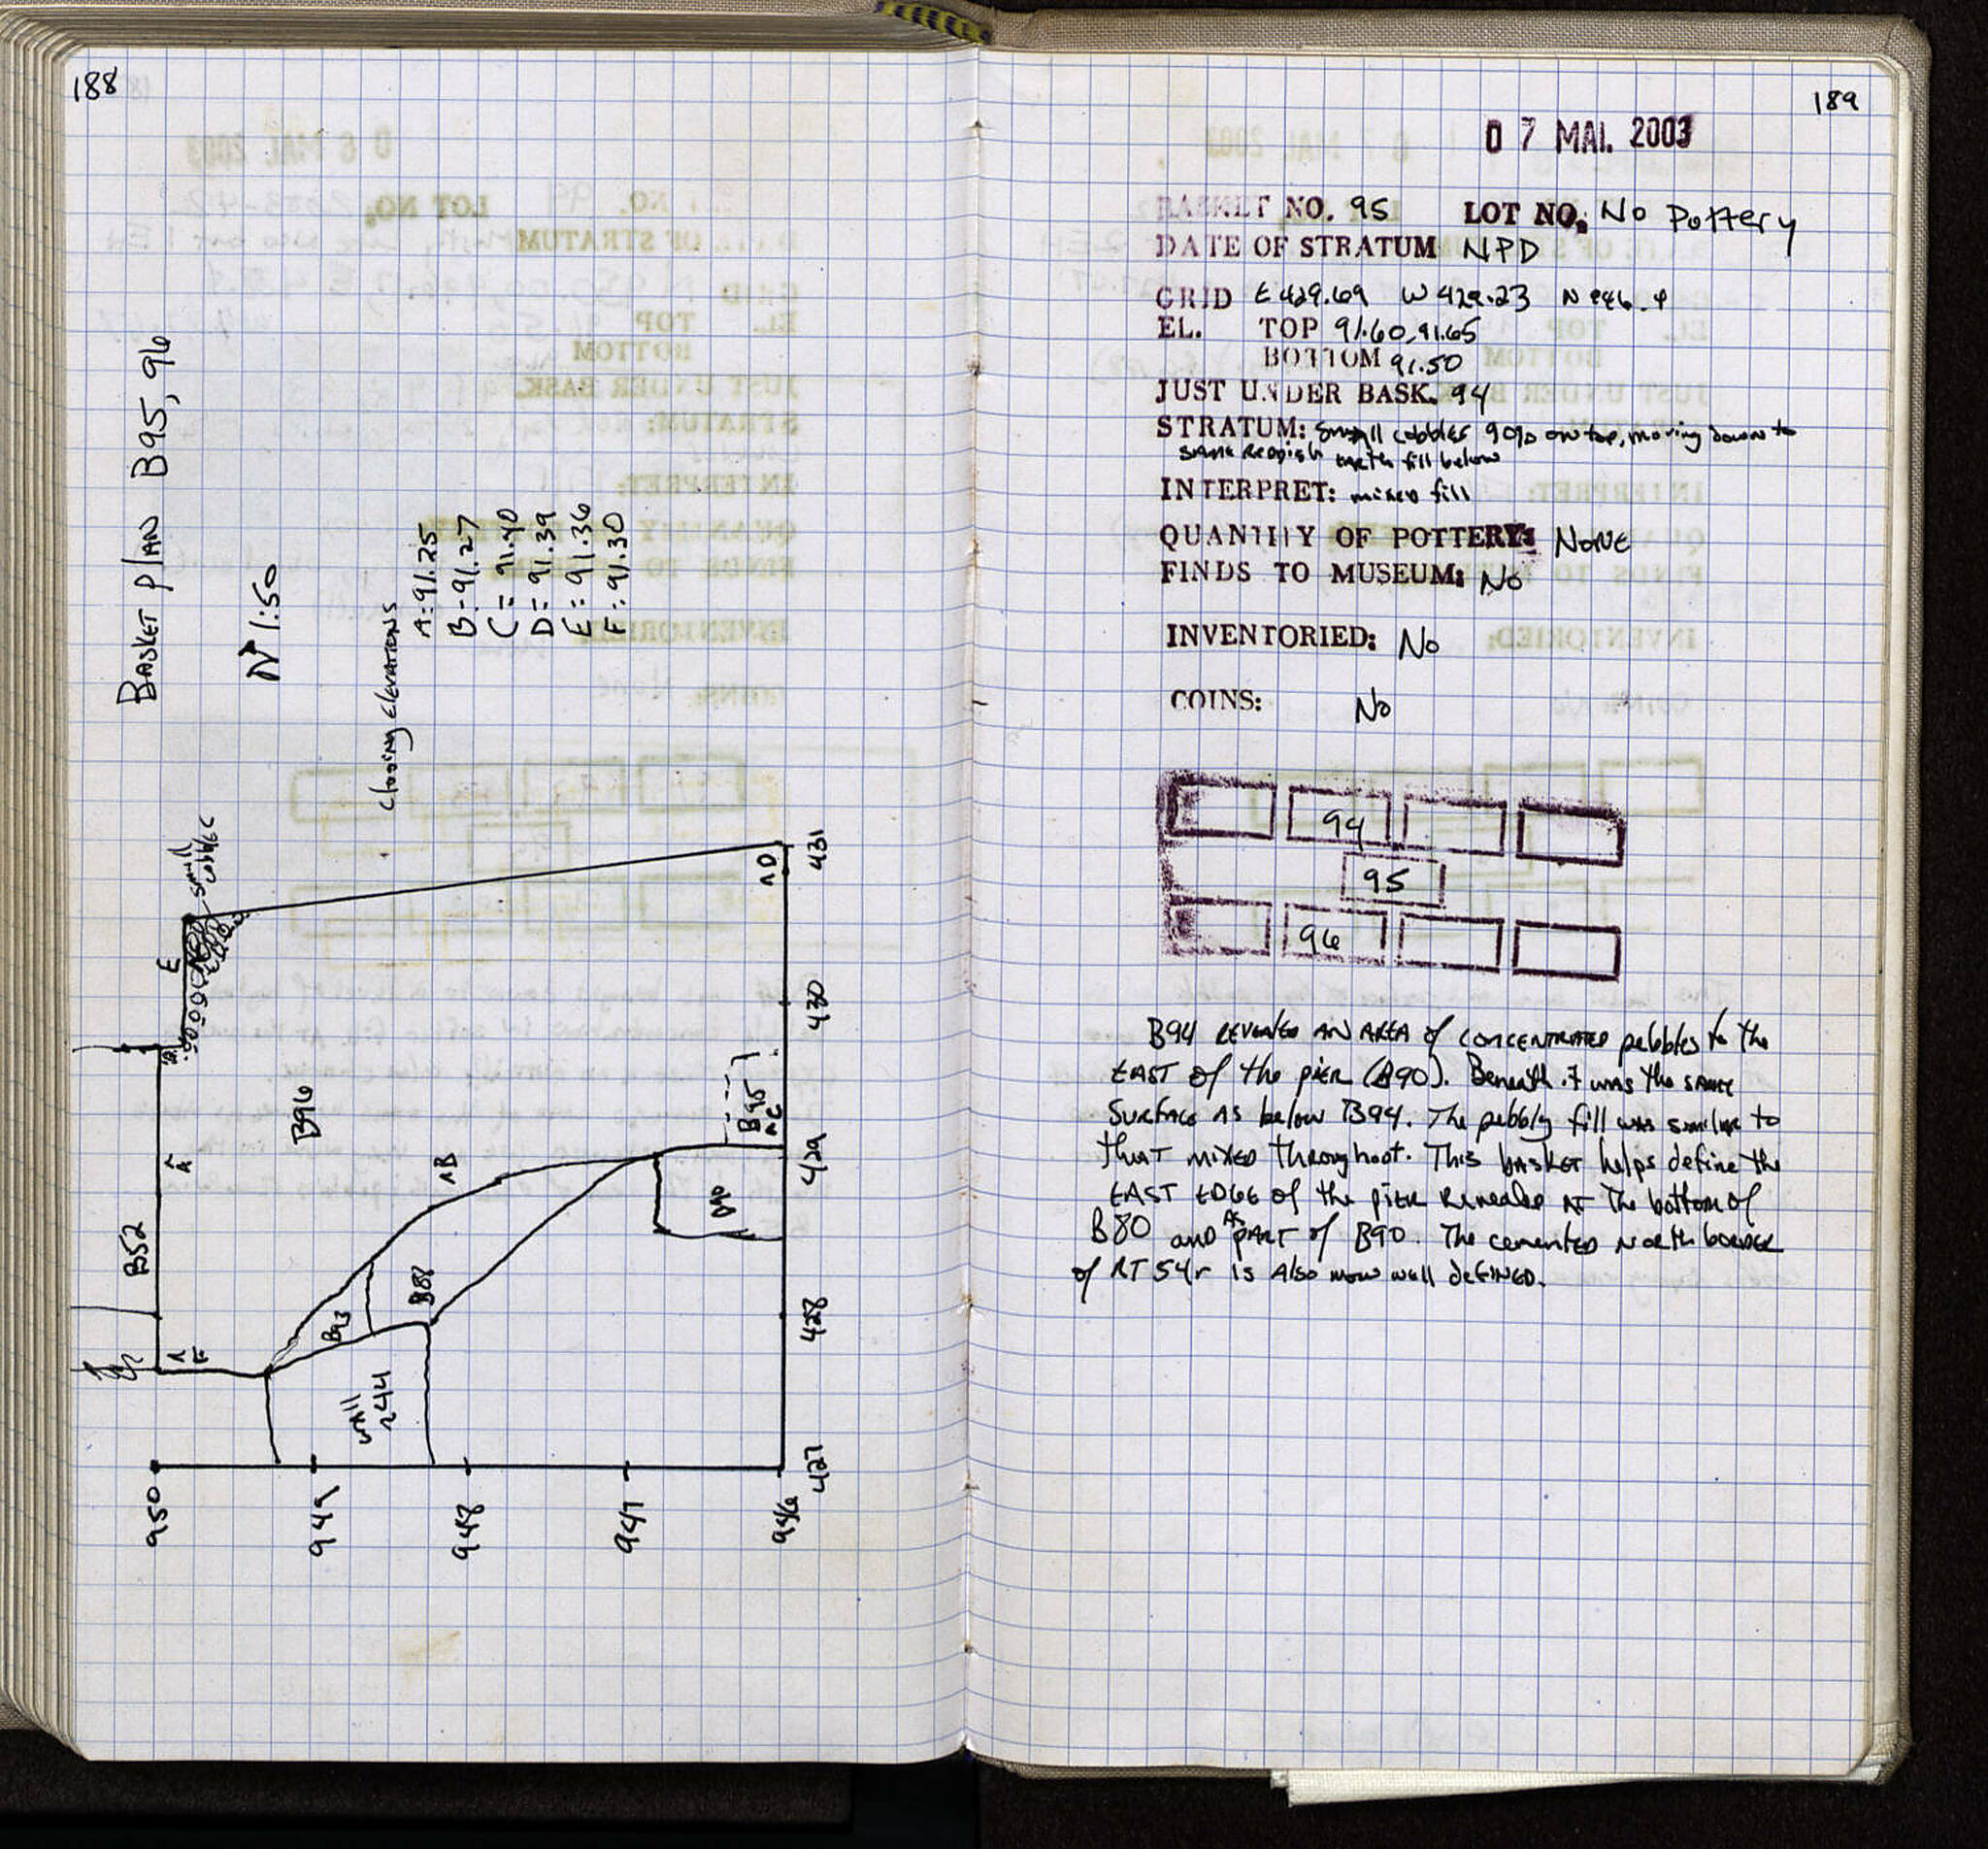 188
BASKET PLAN B95, 96
N 1:50
closing ELEVATIONS
A: 91.25
B- 91.27
C = 91.40
D = 91.39
E : 91.36
F : 91.30
small
cobbles
E
B96
B52
A
B
D
B95
C
B93
B88
B90
F
WALL
244
950
949
948
947
946
427
428
429
430
431
189
07 MAI. 2003
BASKET NO. 95 LOT NO. No Pottery
DATE OF STRATUM NPD
GRID E 429.69 W 429.23 N 946.4
EL. TOP 91.60, 91.65
BOTTOM 91.50
JUST UNDER BASK. 94
STRATUM: small cobbles 90% on top, moving down to
same reddish earth fill below
INTERPRET: mixed fill
QUANTITY OF POTTERY: NONE
FINDS TO MUSEUM: No
INVENTORIED: No
COINS: No
94
95
96
B94 REVEALED AN AREA of CONCENTRATED pebbles to the
EAST of the PIER (B90). Beneath it was the SAME
SURFACE AS below B94. The pebbly fill was similar to
that MIXED throughout. This BASKET helps define the
EAST EDGE of the PIER Revealed AT The bottom of
B80 and AS PART of B90. The cemented North BORDER
of RT 54r is Also now well defined.